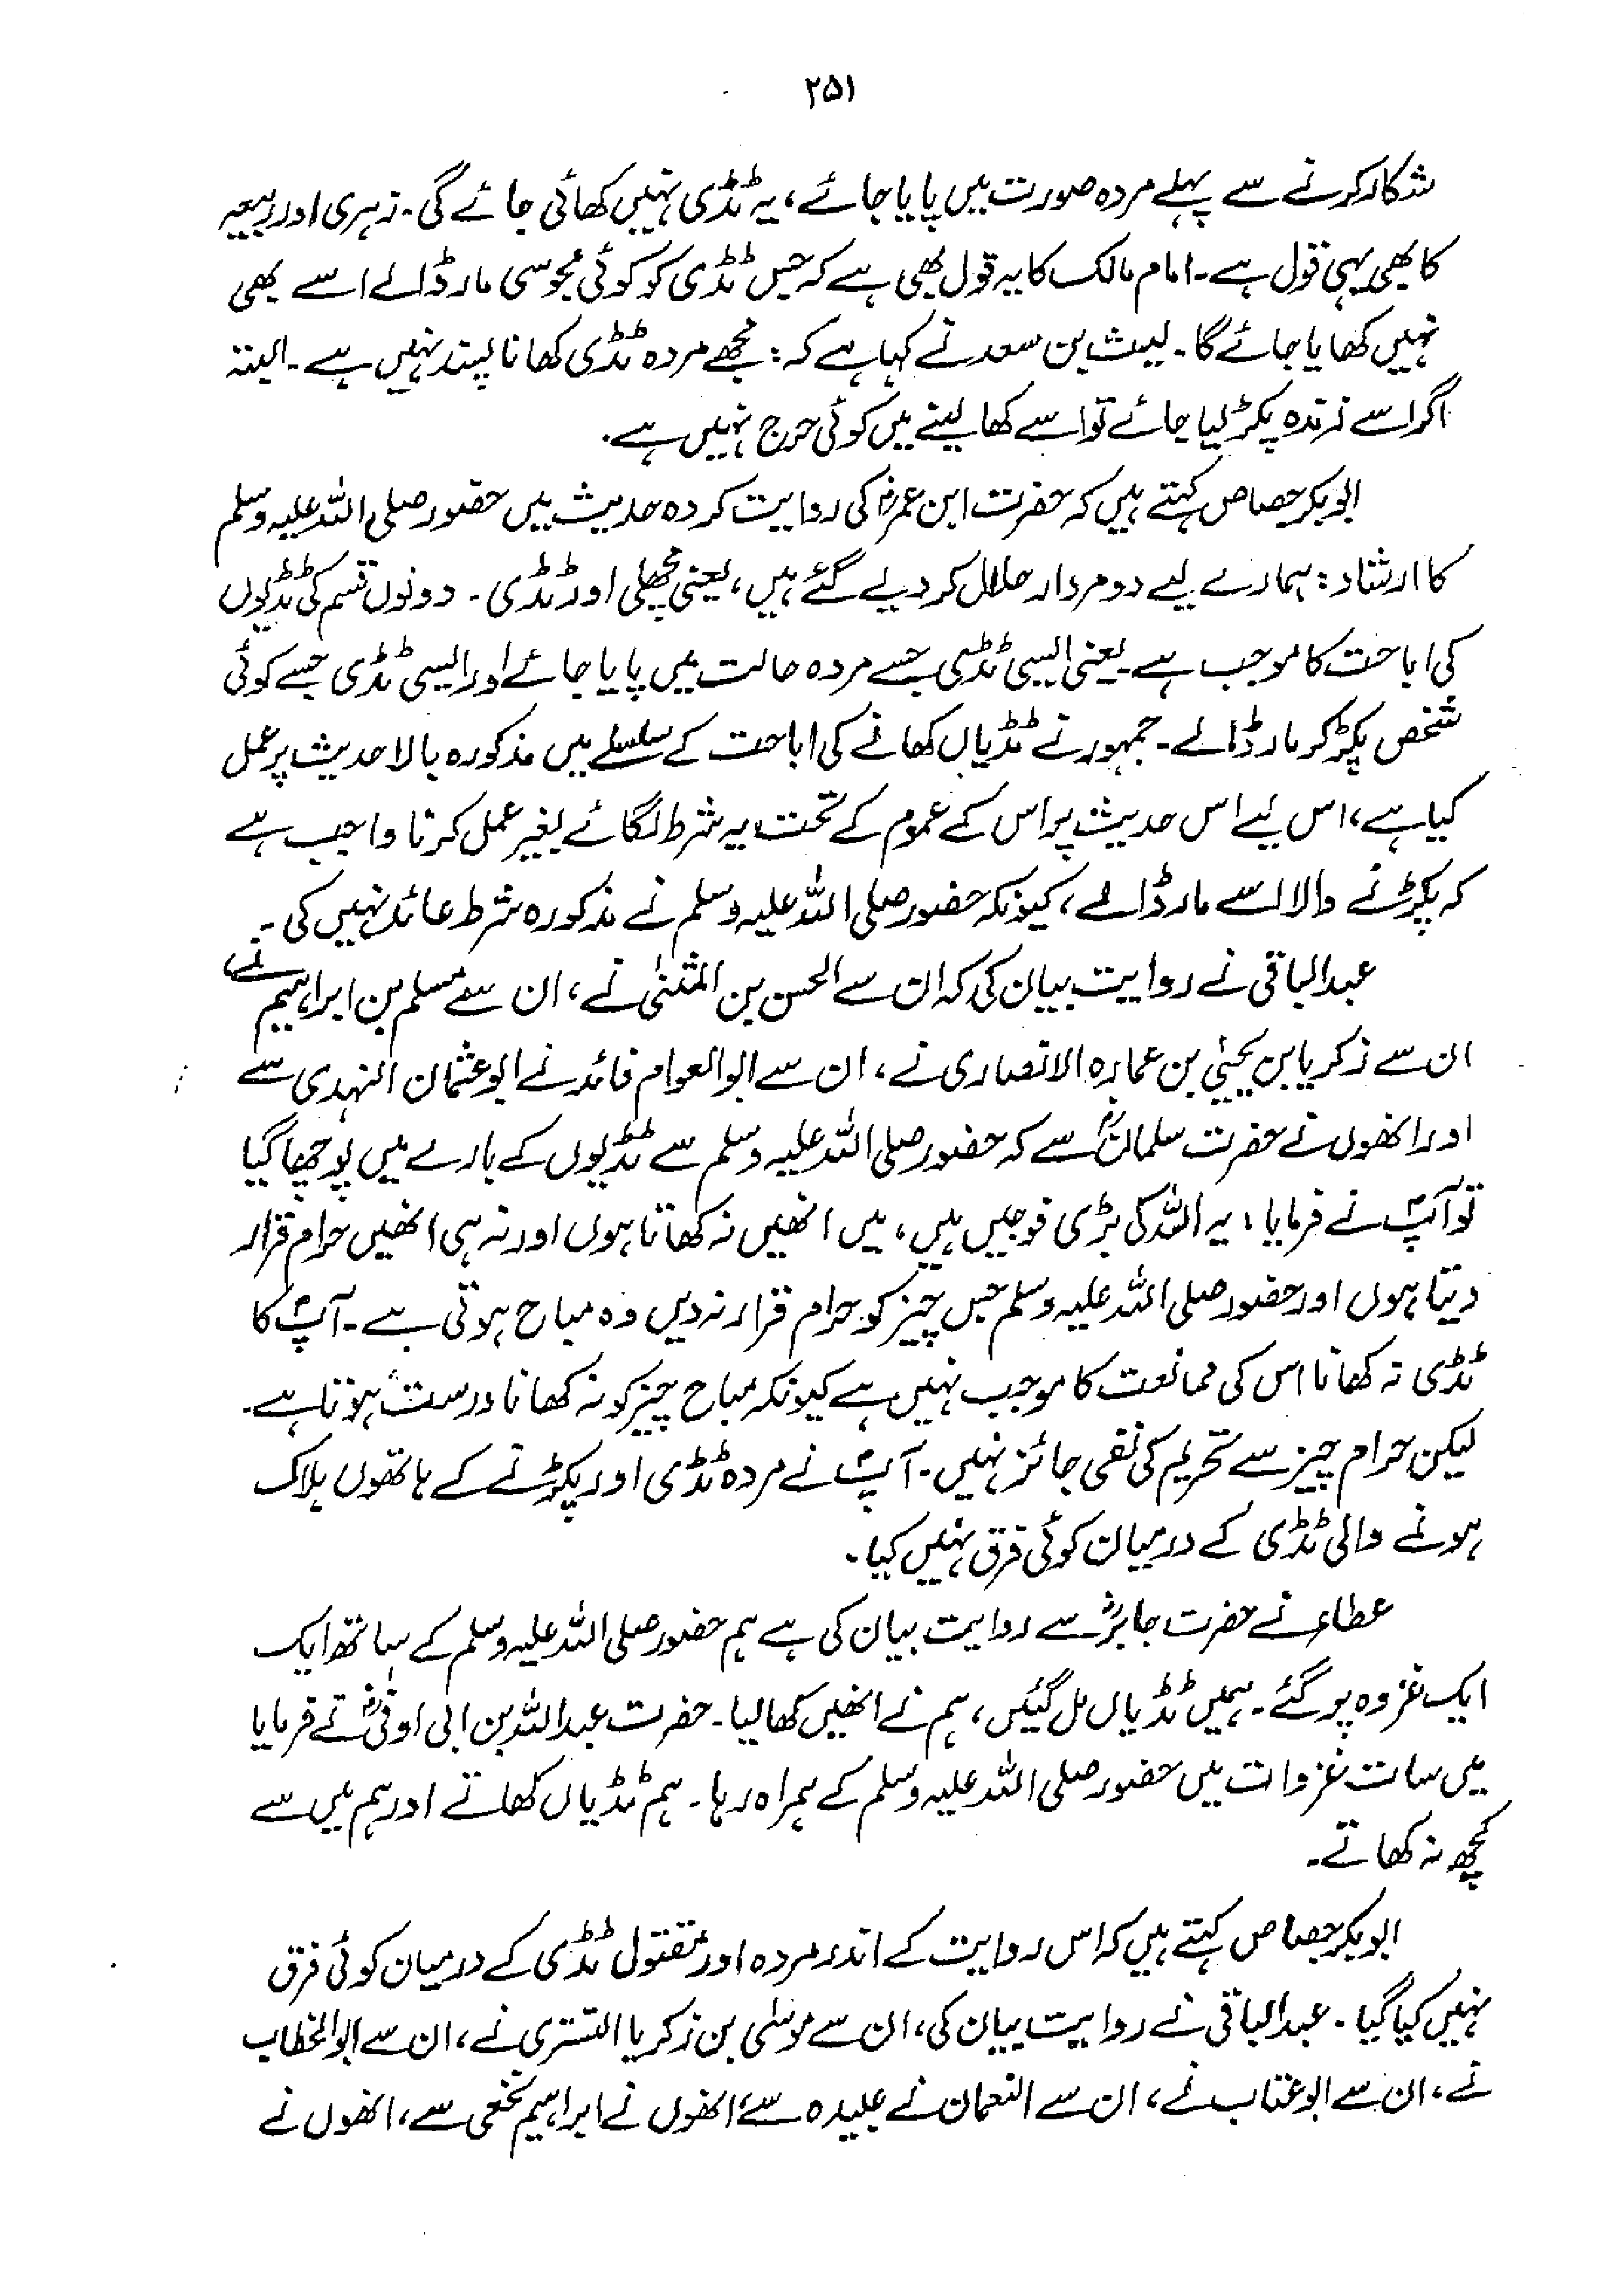 ۲۵۱
شکار کرنے سے پہلے مردہ صورت میں پایا جائے، یہ ٹڈی نہیں کھائی جائے گی۔ زہری اور ربیعہ
کا بھی یہی قول ہے۔ امام مالک کا یہ قول بھی ہے کہ جس ٹڈی کو کوئی مجوسی مار ڈالے اسے بھی
نہیں کھایا جائے گا۔ لیث بن سعد نے کہا ہے کہ: مجھے مردہ ٹڈی کھانا پسند نہیں ہے۔ البتہ
اگر اسے زندہ پکڑ لیا جائے تو اسے کھا لینے میں کوئی حرج نہیں ہے۔
ابوبکر جصاص کہتے ہیں کہ حضرت ابن عمرؓ کی روایت کردہ حدیث میں حضور صلی اللہ علیہ وسلم
کا ارشاد: ہمارے لیے دو مردار حلال کر دیے گئے ہیں، یعنی مچھلی اور ٹڈی۔ دونوں قسم کی ٹڈیوں
کی اباحت کا موجب ہے۔ یعنی ایسی ٹڈی جسے مردہ حالت میں پایا جائے اور ایسی ٹڈی جسے کوئی
شخص پکڑ کر مار ڈالے۔ جمہور نے ٹڈیاں کھانے کی اباحت کے سلسلے میں مذکورہ بالا حدیث پر عمل
کیا ہے، اس لیے اس حدیث پر اس کے عموم کے تحت یہ شرط لگائے بغیر عمل کرنا واجب ہے
کہ پکڑنے والا اسے مار ڈالے، کیونکہ حضور صلی اللہ علیہ وسلم نے مذکورہ شرط عائد نہیں کی۔
عبدالباقی نے روایت بیان کی کہ ان سے الحسن بن المثنیٰ نے، ان سے مسلم بن ابراہیم نے
ان سے زکریا بن یحییٰ بن عمارہ الانصاری نے، ان سے ابوالعوام فائد نے ابوعثمان النہدی سے
اور انھوں نے حضرت سلمانؓ سے کہ حضور صلی اللہ علیہ وسلم سے ٹڈیوں کے بارے میں پوچھا گیا
تو آپؐ نے فرمایا: یہ اللہ کی بڑی فوجیں ہیں، میں انھیں نہ کھاتا ہوں اور نہ ہی انھیں حرام قرار
دیتا ہوں اور حضور صلی اللہ علیہ وسلم جس چیز کو حرام قرار نہ دیں وہ مباح ہوتی ہے۔ آپؐ کا
ٹڈی نہ کھانا اس کی ممانعت کا موجب نہیں ہے کیونکہ مباح چیز کو نہ کھانا درست ہوتا ہے۔
لیکن حرام چیز سے تحریم کی نفی جائز نہیں۔ آپؐ نے مردہ ٹڈی اور پکڑنے کے ہاتھوں ہلاک
ہونے والی ٹڈی کے درمیان کوئی فرق نہیں کیا۔
عطاء نے حضرت جابرؓ سے روایت بیان کی ہے ہم حضور صلی اللہ علیہ وسلم کے ساتھ ایک
ایک غزوہ پر گئے۔ ہمیں ٹڈیاں مل گئیں، ہم نے انھیں کھا لیا۔ حضرت عبداللہ بن ابی اوفیٰؓ نے فرمایا
میں سات غزوات میں حضور صلی اللہ علیہ وسلم کے ہمراہ رہا۔ ہم ٹڈیاں کھاتے اور ہم میں سے
کچھ نہ کھاتے۔
ابوبکر جصاص کہتے ہیں کہ اس روایت کے اندر مردہ اور مقتول ٹڈی کے درمیان کوئی فرق
نہیں کیا گیا۔ عبدالباقی نے روایت بیان کی، ان سے موسٰی بن زکریا التستری نے، ان سے ابوالخطاب
نے، ان سے ابوعتاب نے، ان سے النعمان نے عبیدہ سے، انھوں نے ابراہیم نخعی سے، انھوں نے